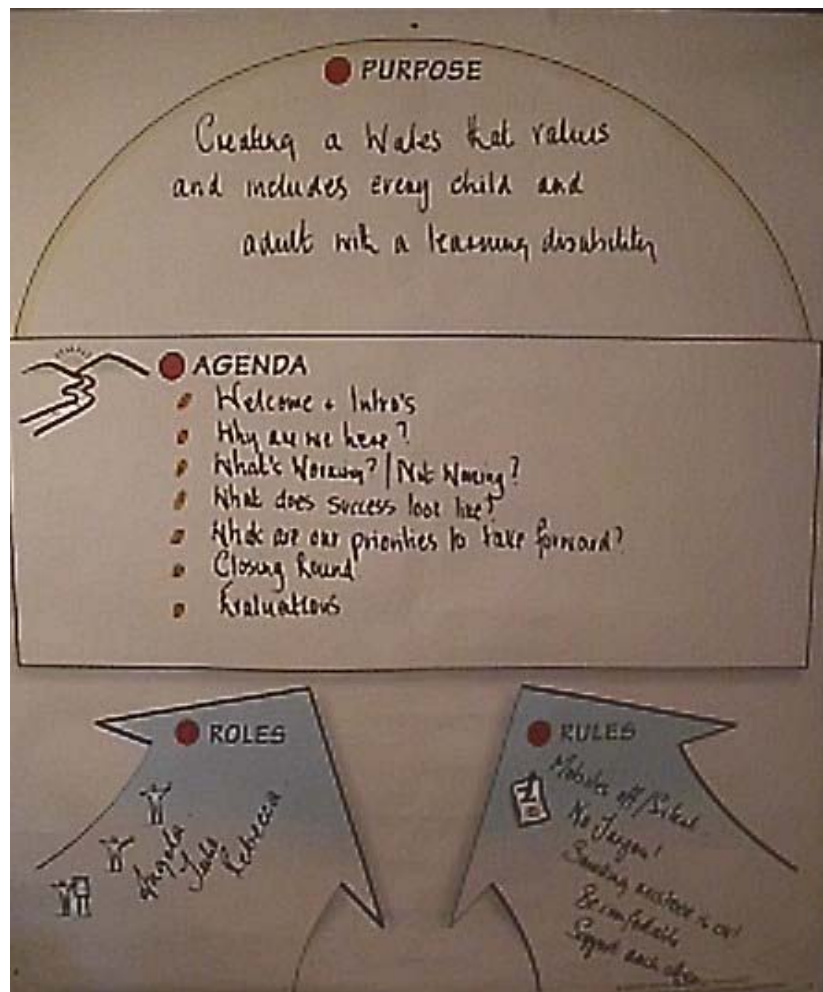 PURPOSE
Creating a Wales that values
and includes every child and
adult with a learning disability
AGENDA
Welcome + Intro's
Why are we here?
What's Working? / Not Working?
What does success look like?
What are our priorities to take forward?
Closing Round
Evaluations
ROLES
Angela
Rebecca
RULES
Mobiles off/Silent
No Jargon!
Be comfortable
Support each other